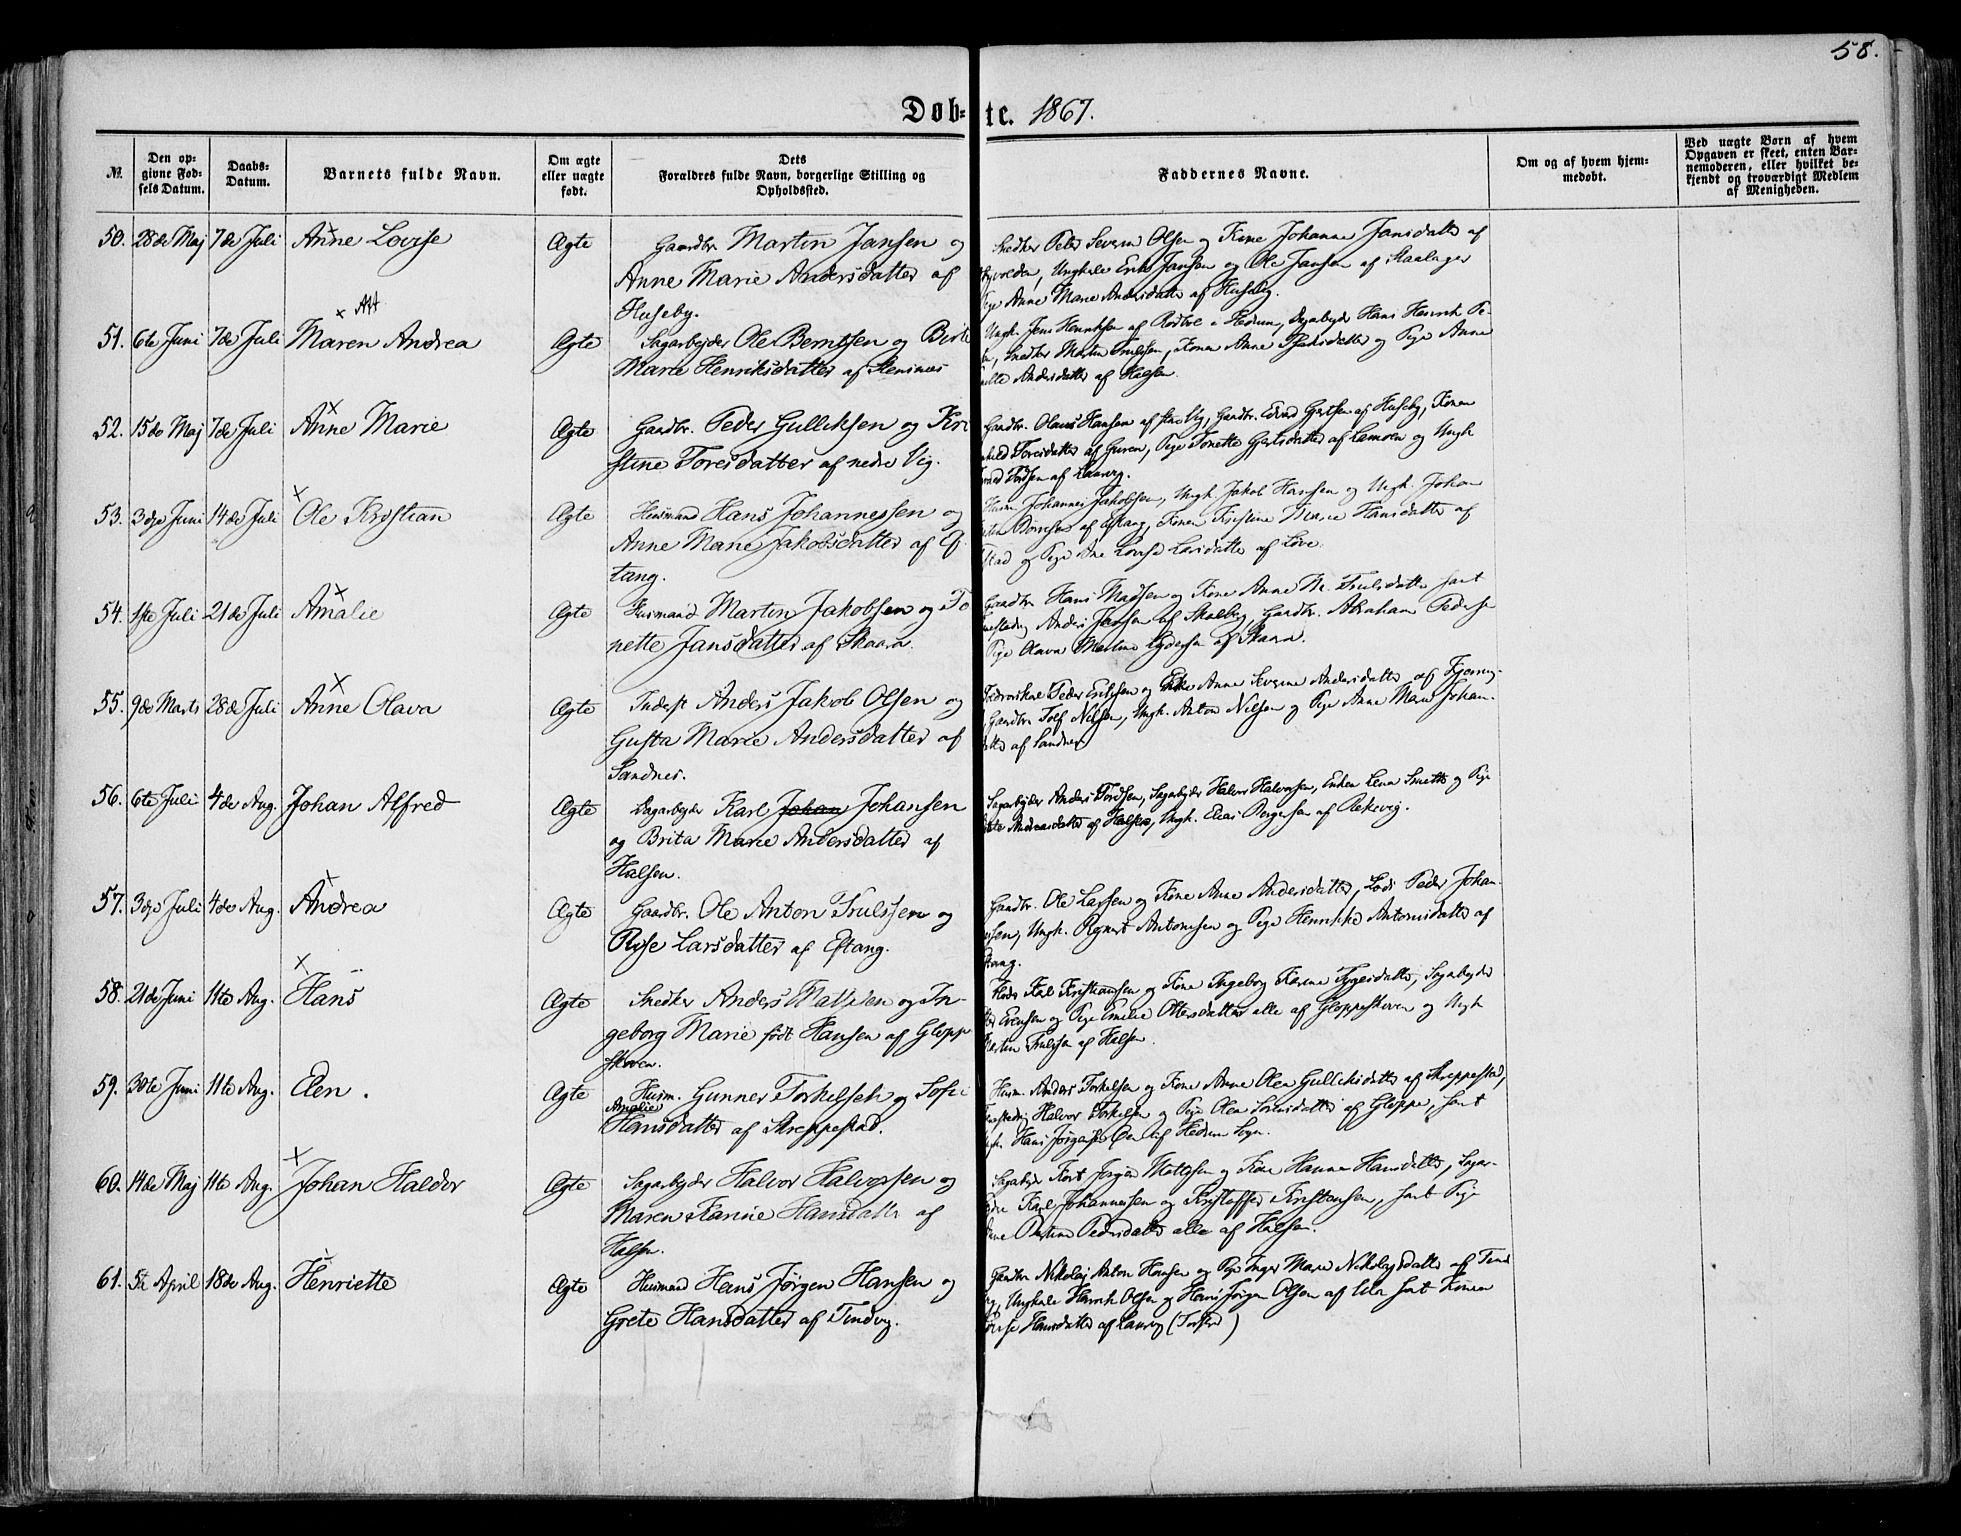 58.
Døb= te. 1867.
№. Den op= givne Fød= sels Datum. Daabs= Datum. Barnets fulde Navn. Om ægte eller uægte født. Dets Forældres fulde Navn, borgerlige Stilling og Opholdssted. Faddernes Navne. Om og af hvem hjem= medøbt. Ved uægte Børn af hvem Opgaven er skeet, enten Bar= nemoderen, eller hvilket be= kjendt og troværdigt Medlem af Menigheden.
50. 28de Maj 7de Juli Anne Lovise Ægte Gaardbr. Martin Jansen og
Anne Marie Andersdatter af
Huseby.
Snedker Peder Severin Olsen og Kone Johanne Jansdatter af
Ungkarle Erik Jansen og Ole Jansen af
Pige Anne Marie Andersdatter af Huseby.
51. 6te Juni 7de Juli Maren Andrea Ægte Sagarbejder Ole Berntsen og Birte
Marie Henriksdatter af
Ungk. Jens Henriksen af i Hedrum, Hans Henrik Pe-
Snedker Martin Trulssen, Konen Anne og Pige Anne
Andersdatter af Halsen.
52. 15de Maj 7de Juli Anne Marie Ægte Gaardbr. Peder Gulliksen og Kri
stine Toresdatter af nedre Vig.
Gaardbr. Olaus Hansen af Gaardbr. Edvard Gjertsen af Huseby, Konen
Toresdatter af Guren, Pige Tonette Gjertsdatter af og Ungk.
af Laurvig.
53. 3die Juni 14de Juli Ole Kristian Ægte Husmand Hans Johannessen og
Anne Marie Jakobsdatter af Ef
tang.
Husm. Johannes Jakobsen, Ungk. Jakob Hansen og Ungk. Johan
af Eftang, Konen Kristine Marie Hansdatter af
og Pige Ane Lovise Larsdatter af Løve.
54. 1ste Juli 21de Juli Amalie Ægte Husmand Martin Jakobsen og To
nette Jansdatter af Skaara.
Gaardbr. Hans Madsen og Kone Anne M. Trulsdatter samt
Anders Jansen af Skalberg, Gaardbr. Abraham Pederse
Pige Olava af Skaara.
55. 9de Marts 28de Juli Anne Olava Ægte Inderst Anders Jakob Olsen og
Gusta Marie Andersdatter af
Sandnes.
Peder Eriksen og Enke Anne Severine Andersdatter af
Gaardbr. Tolf Nilsen, Ungk. Anton Nilsen og Pige Anne Marie Johan-
datter af Sandnes
56. 6te Juli 4de Aug. Johan Alfred Ægte Dagarbejder Karl Johan Johansen
og Brita Marie Andersdatter af
Halsen.
Sagarbejder Anders Tordsen, Sagarbejder Halvor Halvorsen, Enken Lena og Pige
Andreasdatter af Halsen, Ungk. Elias af Rekevig.
57. 3die Juli 4de Aug. Andrea Ægte Gaardbr. Ole Anton Trulssen og
Rise Larsdatter af Eftang.
Gaardbr. Ole Larsen og Kone Anne Andersdatter, Lods Peder Johan-
sen, Ungk. Antonsen og Pige Henrikke Antonsdatter af
58. 21de Juni 11te Aug. Hans Ægte Snedker Anders Mathisen og In-
geborg Marie født Hansen af Glopp
skoven.
Karl Kristiansen og Kone Ingeborg Karine Sagarbejder
Evensen og Pige Emilie Ottersdatter alle af Gloppeskoven og Ungk
Martin Trulssen af Halsen.
59. 30te Juni 11te Aug. Elen. Ægte Husm. Gunner Torkelsen og Sofie
Amalie
Hansdatter af Skreppestad.
Husm. Anders Torkelsen og Kone Anne Olea Gulliksdatter af Skreppestad,
Halvor Torkelsen og Pige Olea Sørensdatter af Gloppe, samt
Hans af Hedrum Sogn.
60. 14de Maj 11te Aug. Johan Haldor Ægte Sagarbejder Halvor Halvorsen og
Maren Karine Hansdatter af
Halsen.
Sagarbejder Kort Jørgen og Kone Hanna Hansdatter, Sagar-
Karl Johannessen og Kristoffer Kristensen, samt Pige
Pedersdatter alle af Halsen.
61. 5te April 18de Aug. Henriette Ægte Husmand Hans Jørgen Hansen og
Grete Hansdatter af Tindvig.
Gaardbr. Nikolaj Anton Hansen og Pige Inger Marie Nikolajsdatter af Tind
Ungkarle Henrik Olsen og Hans Jørgen Olsen af Ula samt Konen
Hansdatter af Laurvig